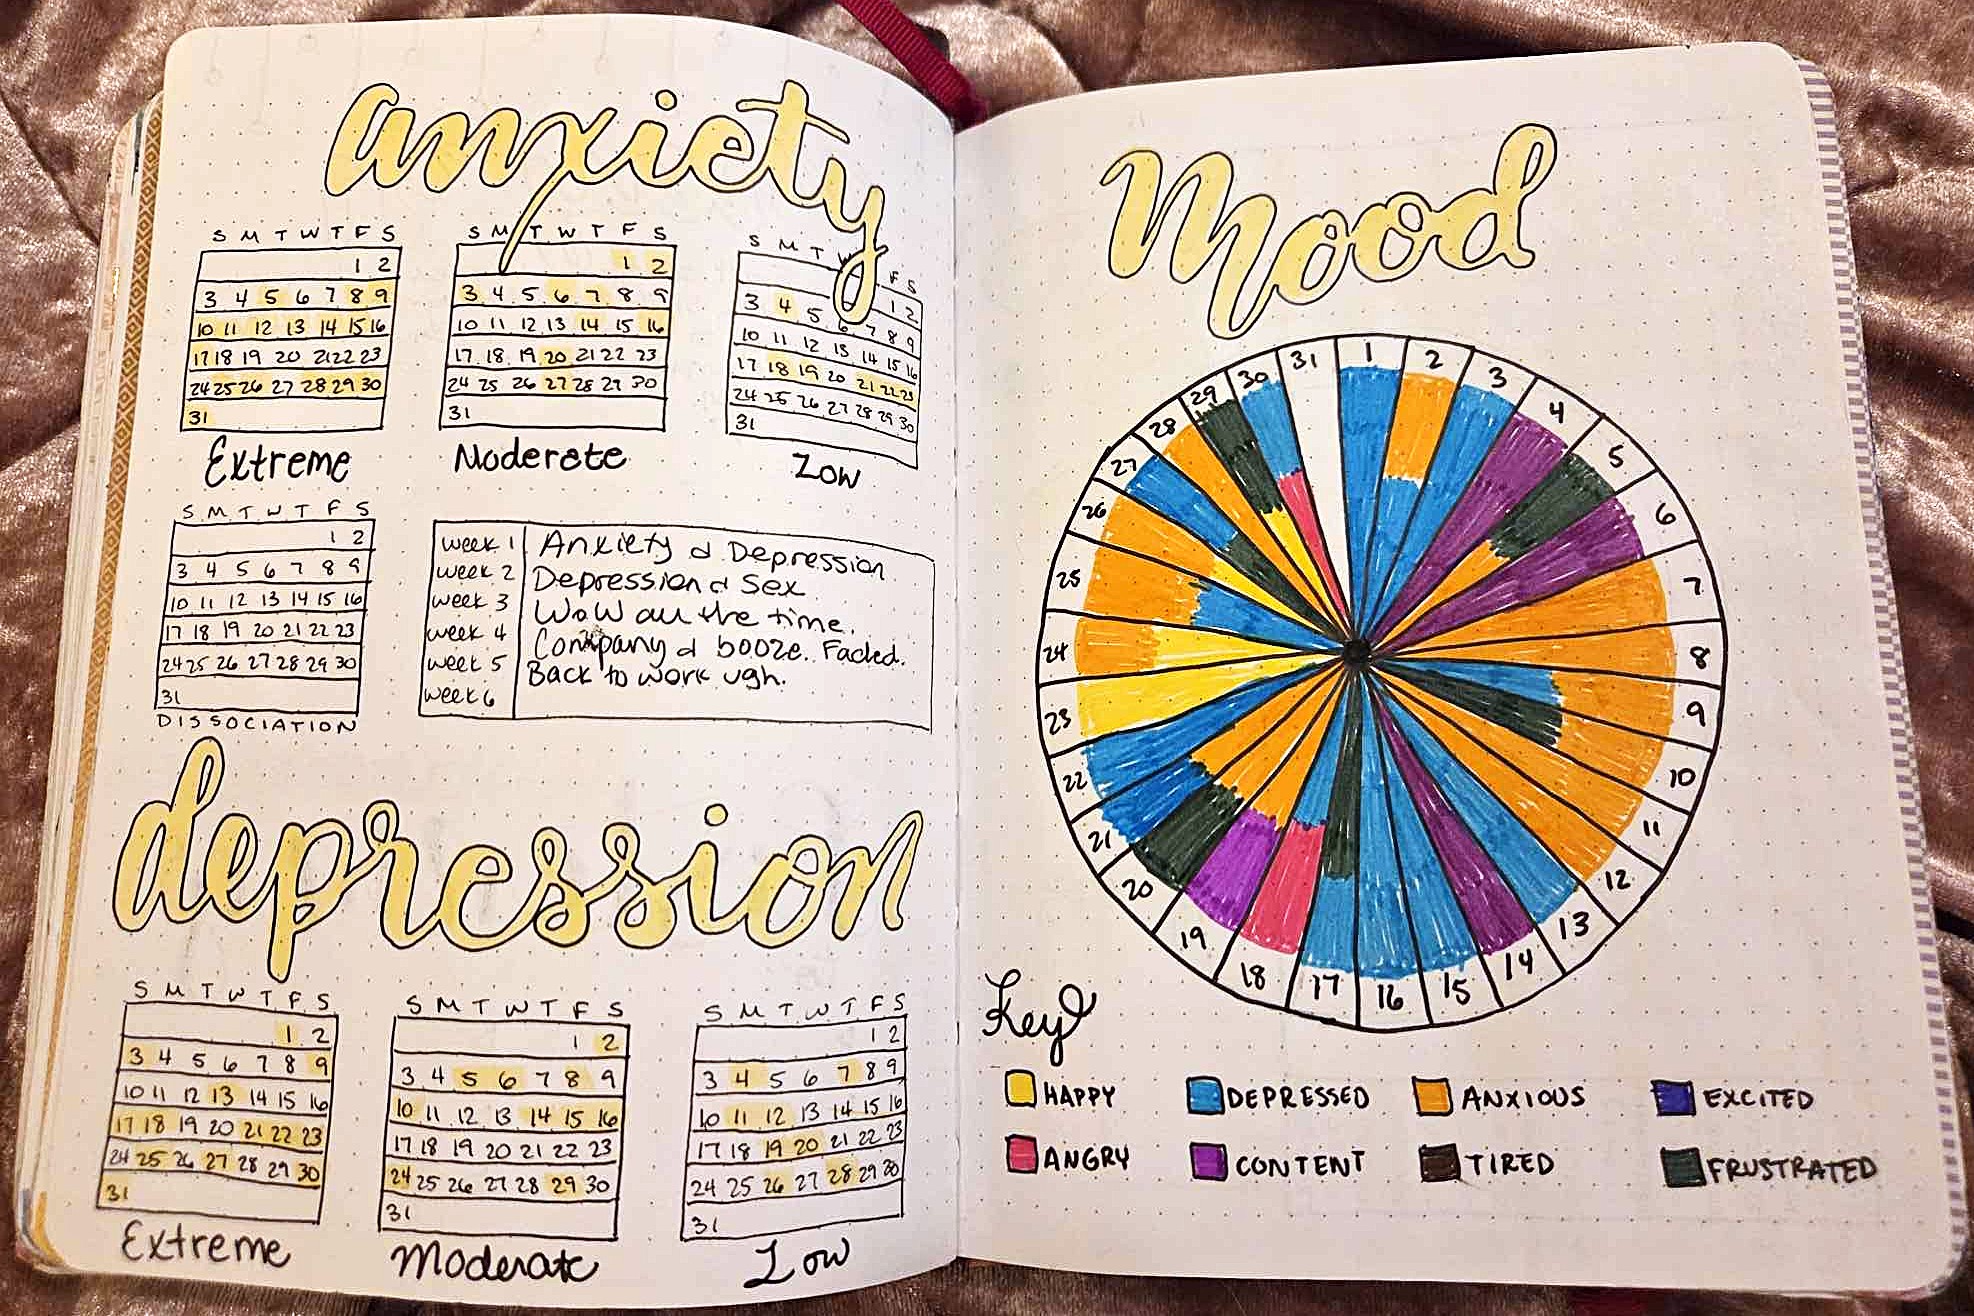 anxiety
S M T W T F S
1 2
3 4 5 6 7 8 9
10 11 12 13 14 15 16
17 18 19 20 21 22 23
24 25 26 27 28 29 30
31
Extreme
S M T W T F S
1 2
3 4 5 6 7 8 9
10 11 12 13 14 15 16
17 18 19 20 21 22 23
24 25 26 27 28 29 30
31
Moderate
S M T W F S
1 2
3 4 5 6 7 8 9
10 11 12 13 14 15 16
17 18 19 20 21 22 23
24 25 26 27 28 29 30
31
Low
S M T W T F S
1 2
3 4 5 6 7 8 9
10 11 12 13 14 15 16
17 18 19 20 21 22 23
24 25 26 27 28 29 30
31
DISSOCIATION
week 1 Anxiety & Depression
week 2 Depression & Sex
week 3 WoW all the time.
week 4 Company & booze. Faded.
week 5 Back to work ugh.
week 6
depression
S M T W T F S
1 2
3 4 5 6 7 8 9
10 11 12 13 14 15 16
17 18 19 20 21 22 23
24 25 26 27 28 29 30
31
Extreme
S M T W T F S
1 2
3 4 5 6 7 8 9
10 11 12 13 14 15 16
17 18 19 20 21 22 23
24 25 26 27 28 29 30
31
Moderate
S M T W T F S
1 2
3 4 5 6 7 8 9
10 11 12 13 14 15 16
17 18 19 20 21 22 23
24 25 26 27 28 29 30
31
Low
Mood
1
2
3
4
5
6
7
8
9
10
11
12
13
14
15
16
17
18
19
20
21
22
23
24
25
26
27
28
29
30
31
Key
HAPPY DEPRESSED ANXIOUS EXCITED
ANGRY CONTENT TIRED FRUSTRATED